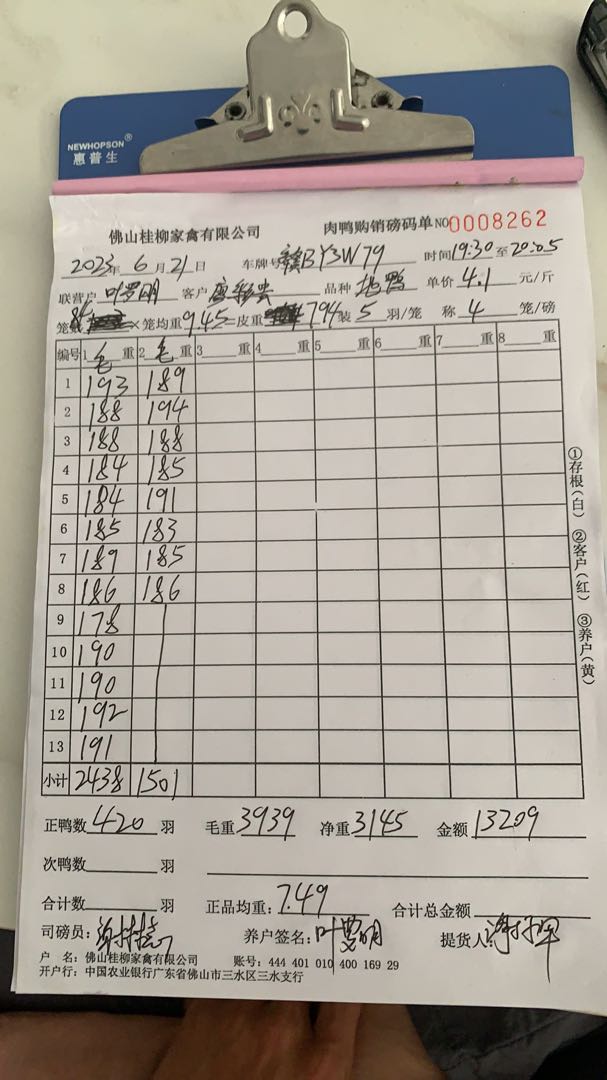 NEWHOPSON®
惠普生
佛山桂柳家禽有限公司 肉鸭购销磅码单 NO 0008262
2023年 6月 21日 车牌号 赣BY3W79 时间 19:30 至 20:05
联营户 叶罗明 客户 品种 4.1 元/斤 单价
笼数 84 ×笼均重 9.45 =皮重 794 装 5 羽/笼 称 4 笼/磅
编号 1 毛 重 2 毛 重 3 重 4 重 5 重 6 重 7 重 8 重
1 193 189
2 188 194
3 188 188
4 184 185
5 184 191
6 185 183
7 189 185
8 186 186
9 178
10 190
11 190
12 192
13 191
小计 2438 1501
①存根(白) ②客户(红) ③养户(黄)
正鸭数 420 羽 毛重 3939 净重 3145 金额 13209
次鸭数 羽
合计数 羽 正品均重: 7.49 合计总金额
司磅员: 养户签名: 叶罗明 提货人
户 名: 佛山桂柳家禽有限公司 账号: 444 401 010 400 169 29
开户行: 中国农业银行广东省佛山市三水区三水支行